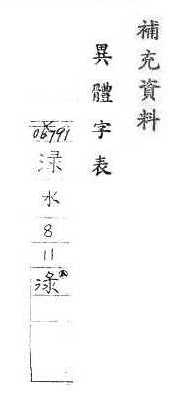 補充資料
異體字表
06791
渌
水
8
11
淥